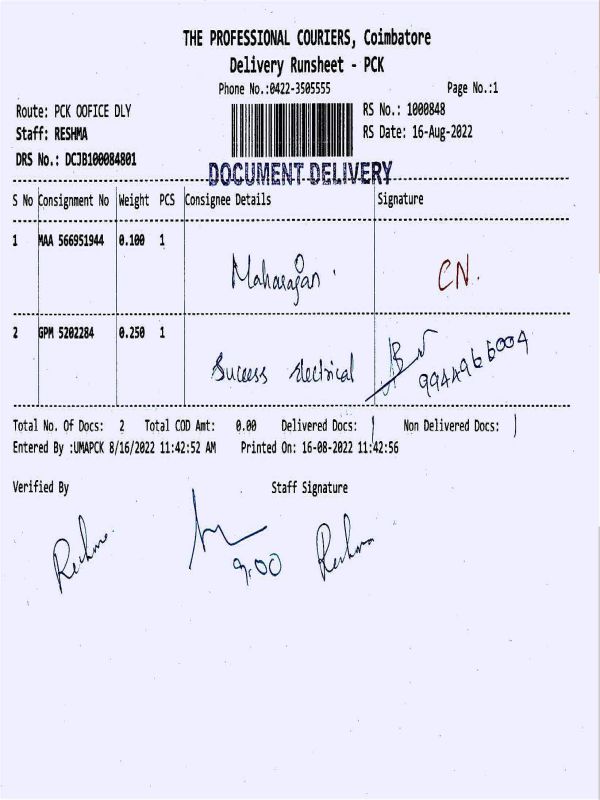 THE PROFESSIONAL COURIERS, Coimbatore
Delivery Runsheet - PCK
Phone No.:0422-3505555 Page No.:1
Route: PCK OOFICE DLY RS No.: 1000848
Staff: RESHMA RS Date: 16-Aug-2022
DRS No.: DCJB100084801
DOCUMENT DELIVERY
S No Consignment No Weight PCS Consignee Details Signature
1 MAA 566951944 0.100 1
Maharajan CN.
2 GPM 5202284 0.250 1
Success electrical 9944966004
Total No. Of Docs: 2 Total COD Amt: 0.00 Delivered Docs: 1 Non Delivered Docs: 1
Entered By :UMAPCK 8/16/2022 11:42:52 AM Printed On: 16-08-2022 11:42:56
Verified By Staff Signature
Reshma 9.00 Reshma